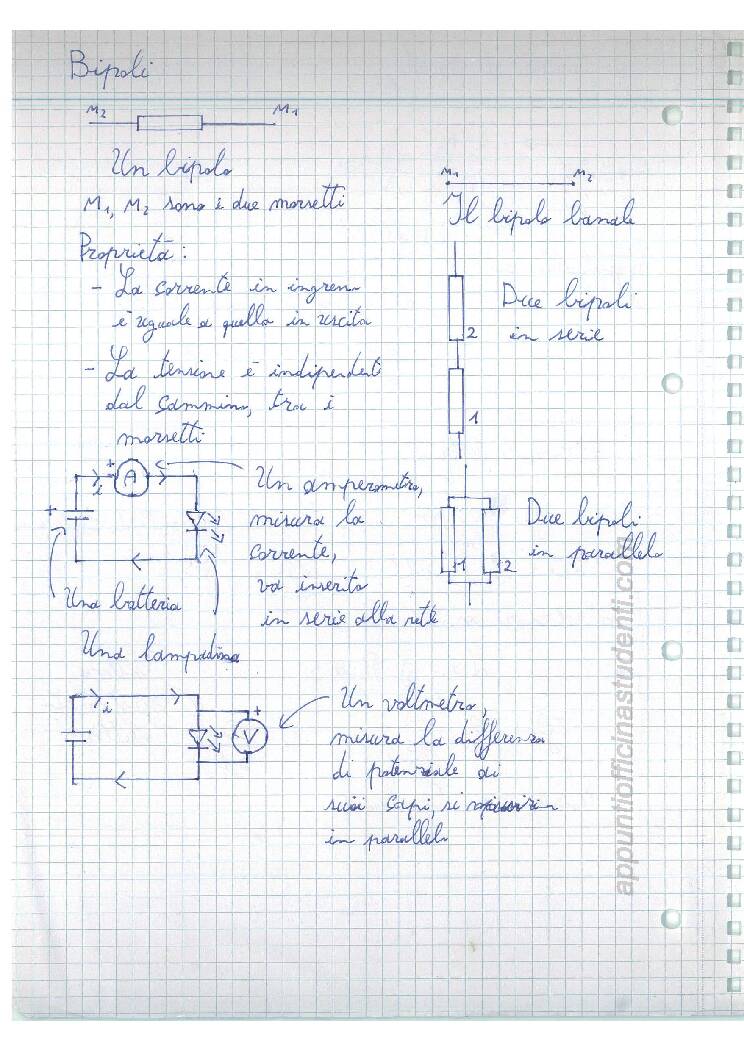 Bipoli
M2 M1
Un bipolo
M1, M2 sono i due morsetti
Proprietà:
- La corrente in ingresso
è uguale a quella in uscita
- La tensione è indipendenti
dal cammino, tra i
morsetti
M1 M2
Il bipolo banale
Due bipoli
in serie
2
1
Due bipoli
in parallelo
1 2
+ A
i
+
Un amperometro,
misura la
corrente,
va inserito
in serie alla rete
Una batteria
Una lampadina
i
+
V
Un voltmetro,
misura la differenza
di potenziale ai
suoi capi, si
in parallelo
appuntiofficinastudenti.com